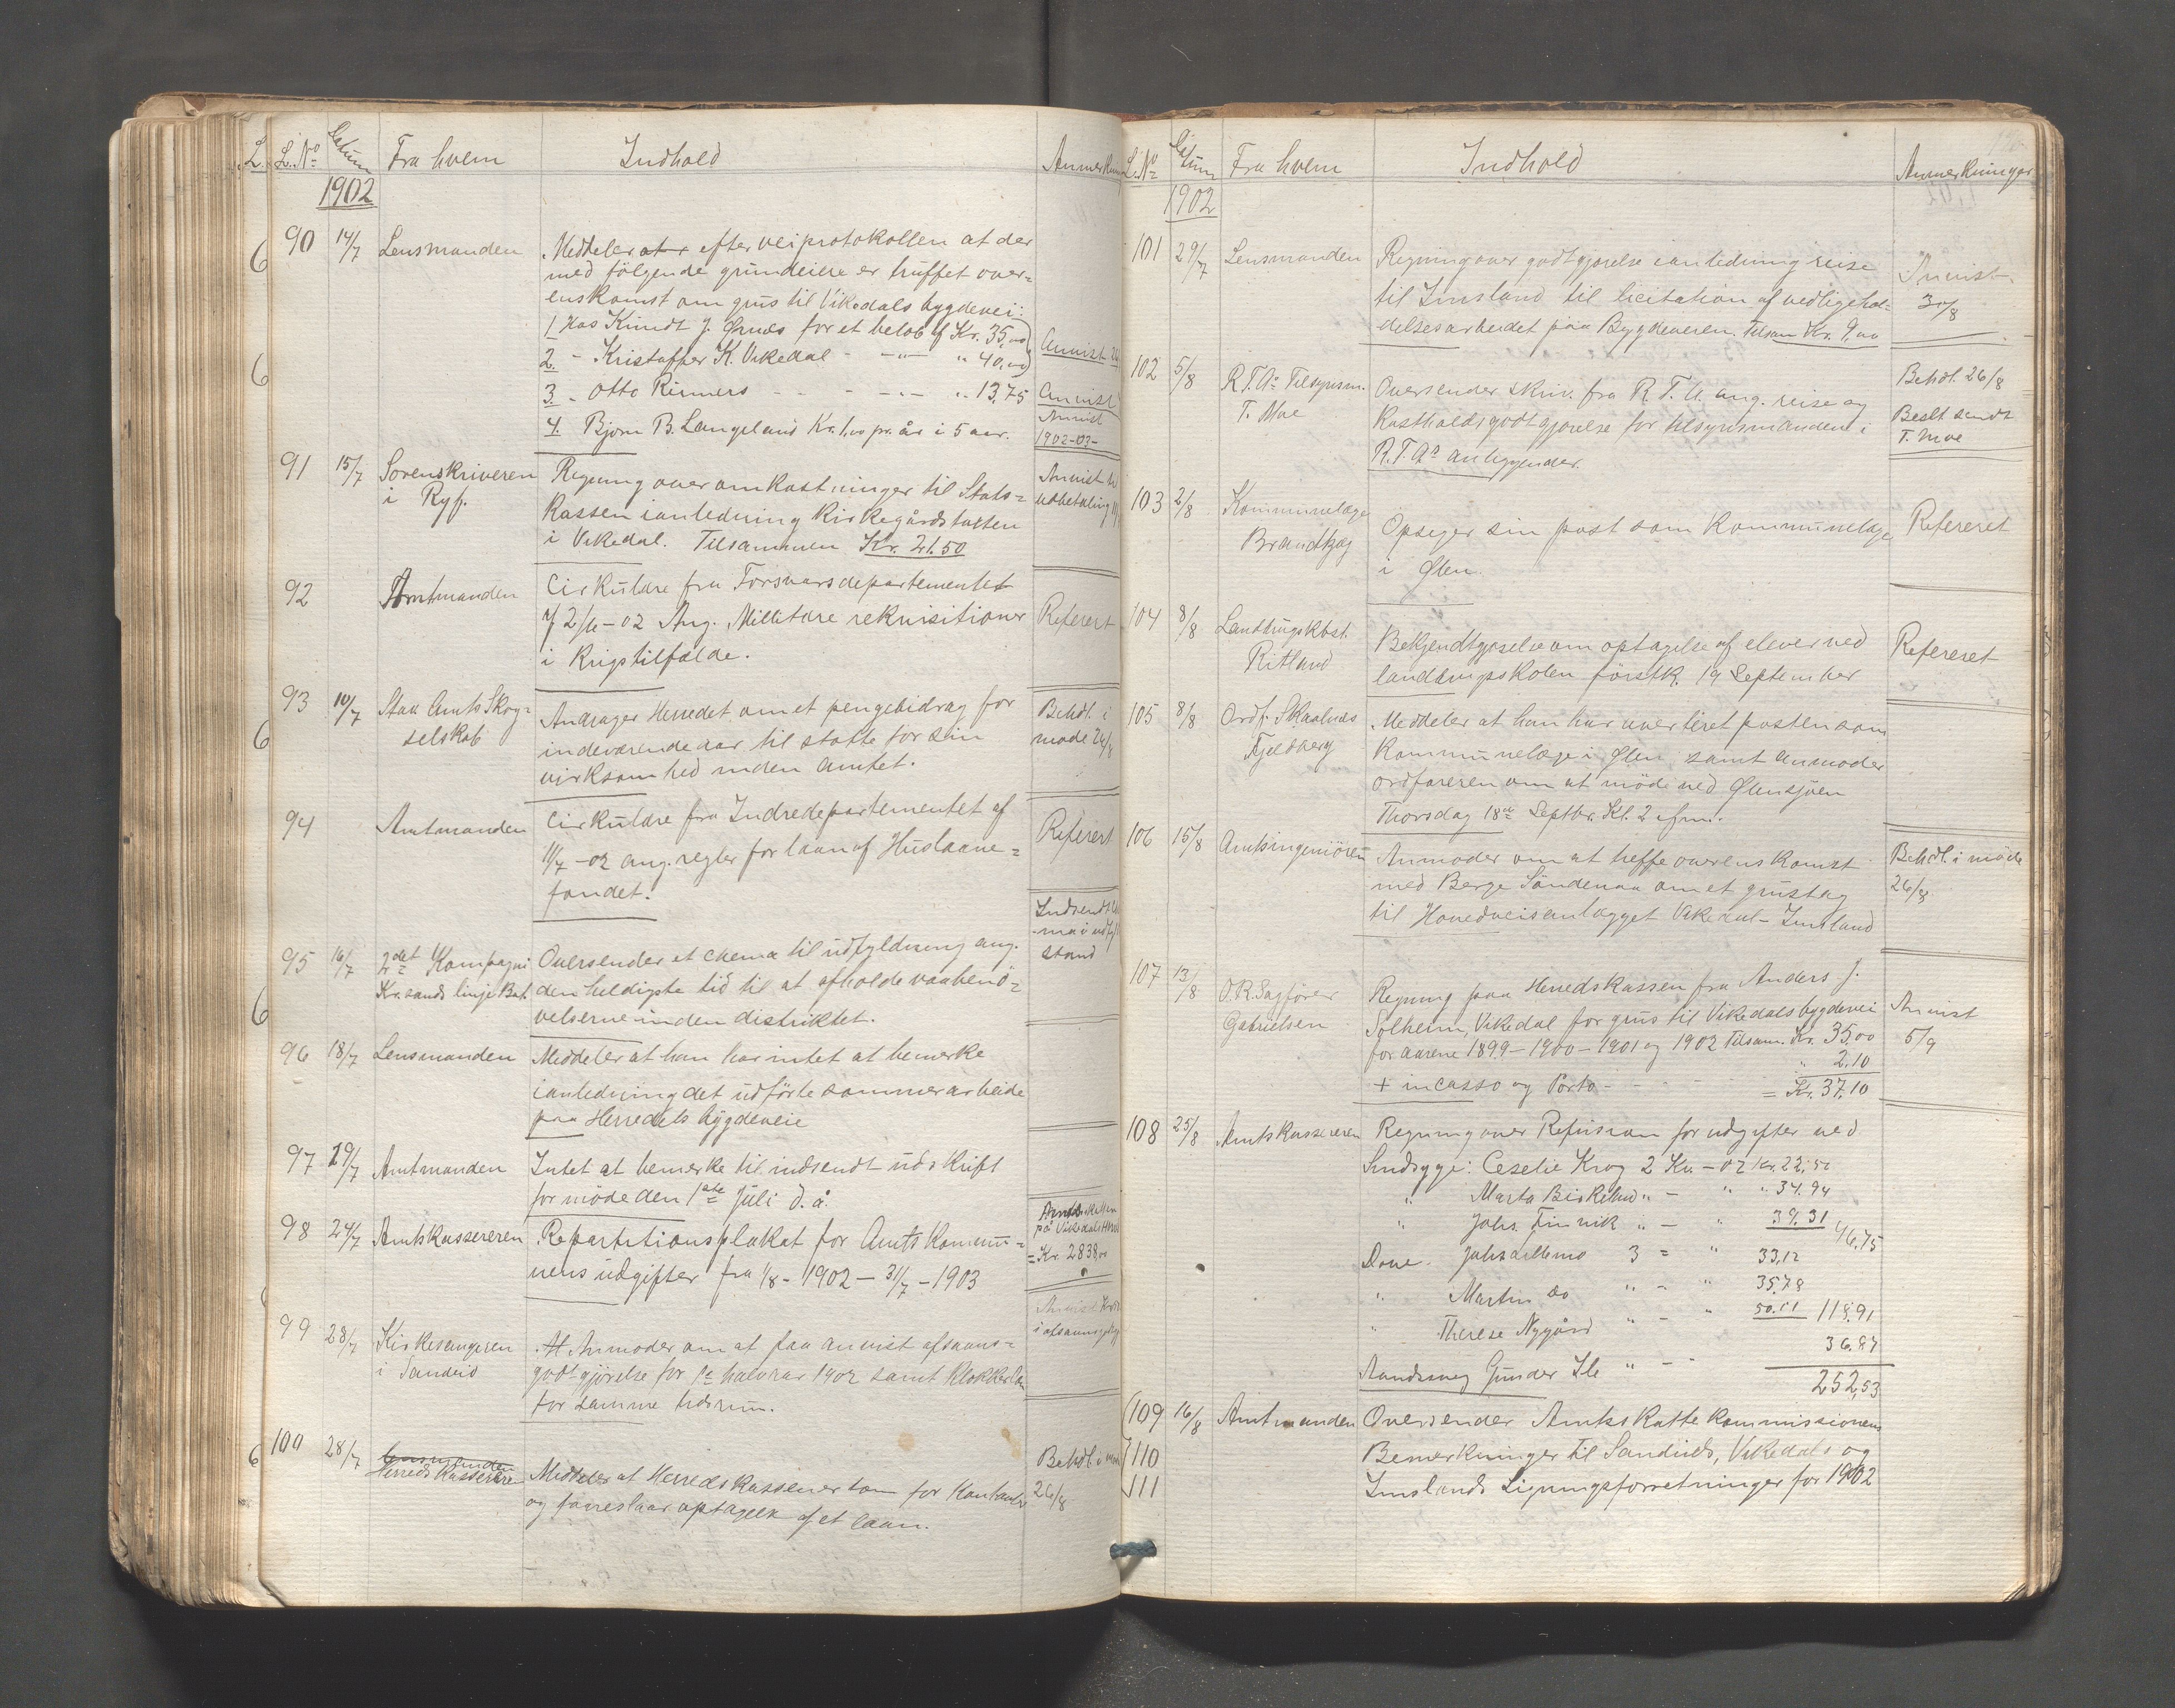 L. L.No Datum Fra hvem Indhold Anmerkn
1902
90 14/7 Lensmanden Meddeler at efter veiprotokollen at der
med følgende grundeiere er truffet over-
enskomst om grus til Vikedals bygdevei:
1 Hos Knudt J. Ørnes for et beløb af Kr. 35,00
2. - Kristoffer K. Vikedal - -"- " 40,00 Anvist
3. - Otto Rimmers - - -"- " 13,75 Anvist
4. Bjørn B. Langeland Kr. 1,00 pr. år i 5 aar. Anvist
1902-03-
91 15/7 Sorenskriveren Regning over omkostninger til Stats- Anvist til
i Ryf. kassen ianledning Kirkegårdstakten udbetaling
i Vikedal. Tilsammen Kr. 21.50
92 Amtmanden Cirkulære fra Forsvarsdepartementet
af 2/6-02 Ang. Millitære rekvisitioner Referert
i Krigstilfælde.
93 10/7 Stav Amts Skog- Andrager Herredet om et pengebidrag for Behdl. i
selskab indeværende aar til støtte for sin møde 26/8
virksomhed inden Amtet.
94 Amtmanden Cirkulære fra Indredepartementet af Referert
11/7-02 ang. regler for laan af Huslaane-
fondet.
Indsendt
i udfyldt
stand
95 16/7 2det Kompagni Oversender et chema til udfyldning ang.
Kr.sands linje Bat. den heldigste tid til at afholde vaabenø-
velserne inden distriktet.
96 18/7 Lensmanden Meddeler at han har intet at bemerke
ianledning det udførte sommerarbeide
paa Herredets bygdeveie
97 29/7 Amtmanden Intet at bemerke til indsendt udskrift
for møde den 1ste Juli d. å.
98 24/7 Amtskassereren Repartitionsplakat for Amtskommu- på Vikedals
nens udgifter fra 1/8-1902-31/7-1903 = Kr. 2838,00
99 28/7 Kirkesangeren At Anmoder om at faa anvist afsavns- Anvist
i Sandeid godtgjørelse for 1ste halvaar 1902 samt Klokker
for samme tidsrum.
100 28/7 Lensmanden
Herredskassereren Meddeler at Herredskassen er tom for Kontanter Behdl. i møde
og foreslaar optagelse af et laan. 26/8
L.No Datum Fra hvem Indhold Anmerkninger
1902
101 29/7 Lensmanden Regning over godtgjørelse ianledning reise Anvist
til Imsland til licitation af vedligehol- 30/8
delsesarbeidet paa Bygdeveien. Tilsam Kr. 9,00
102 5/8 R.T.As Tilsynsm. Oversender skriv. fra R.T.A. ang. reise og Behdl. 26/8
T. Moe kostholdsgodtgjørelse for tilsynsmanden i Beslt sendt
R.T.As anliggender. T. Moe
103 2/8 Kommunelæge Opsiger sin post som Kommunelæge Refereret
Brandtzæg i Ølen
104 8/8 Landbrugskbst. Bekjendtgjørelse om optagelse af elever ved Refereret
Ritland landbrugsskolen førstk. 19 September
105 8/8 Ordf. Skaalnæs Meddeler at han har averteret posten som
Fjeldberg Kommunelæge i Ølen samt anmoder
ordføreren om at møde ved Ølensjøen
Thorsdag 18de Septbr. Kl. 2 efm.
106 15/8 Amtsingeniøren Anmoder om at treffe overenskomst Behdl. i møde
med Berge Søndenaa om et grustag 26/8
til Hovedveisanlægget Vikedal-Imsland
107 13/8 O.R.Sagfører Regning paa Herredskassen fra Anders J.
Gabrielsen Solheim, Vikedal for grus til Vikedals bygdevei Anvist
for aarene 1899-1900-1901 og 1902 Tilsam. Kr. 35,00 5/9
+ incasso og Porto - - - " 2.10
= Kr. 37,10
108 25/8 Amtskassereren Regning over Refusion for udgifter ved
Sindsyge: Ceselie Krog 2 Kv. - 02 Kr. 22,50
" Marta Birkeland " - " " 34.94
" Johs. Finvik " - " 39.31 96.75
Døve. Johs 3 = " 33,12
" Martin do " - " 35,78
" Therese Nygård " - " 50.01 118,91
Aandssvag Gunder Ile " - " 36.87
252,53
109 16/8 Amtmanden Oversender Amtsskattekommissionens
110 Bemerkninger til Sandeids, Vikedals og
111 Imslands Ligningsforretninger for 1902